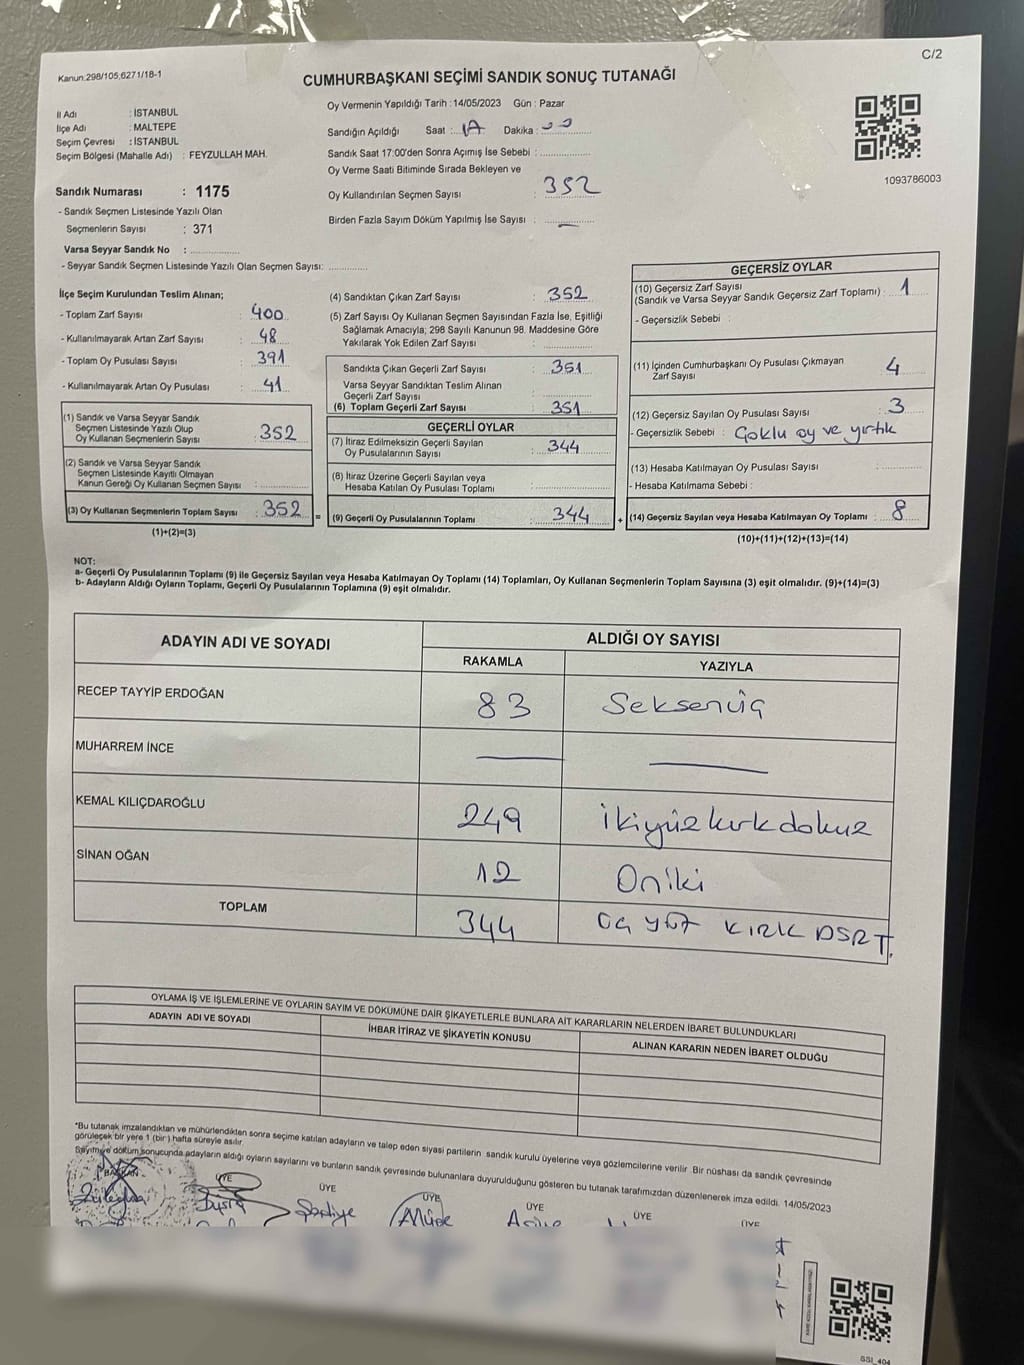 C/2
Kanun:298/105,6271/18-1
CUMHURBAŞKANI SEÇİMİ SANDIK SONUÇ TUTANAĞI
İl Adı : İSTANBUL
İlçe Adı : MALTEPE
Seçim Çevresi : İSTANBUL
Seçim Bölgesi (Mahalle Adı) : FEYZULLAH MAH.
Sandık Numarası : 1175
- Sandık Seçmen Listesinde Yazılı Olan
Seçmenlerin Sayısı : 371
Varsa Seyyar Sandık No :
- Seyyar Sandık Seçmen Listesinde Yazılı Olan Seçmen Sayısı:
Oy Vermenin Yapıldığı Tarih :14/05/2023 Gün : Pazar
Sandığın Açıldığı Saat : Dakika :
Sandık Saat 17:00'den Sonra Açımış İse Sebebi :
Oy Verme Saati Bitiminde Sırada Bekleyen ve
Oy Kullandırılan Seçmen Sayısı : 352
Birden Fazla Sayım Döküm Yapılmış İse Sayısı : —
1093786003
İlçe Seçim Kurulundan Teslim Alınan;
- Toplam Zarf Sayısı : 400
- Kullanılmayarak Artan Zarf Sayısı : 48
- Toplam Oy Pusulası Sayısı : 391
- Kullanılmayarak Artan Oy Pusulası : 41
(1) Sandık ve Varsa Seyyar Sandık
Seçmen Listesinde Yazılı Olup
Oy Kullanan Seçmenlerin Sayısı : 352
(2) Sandık ve Varsa Seyyar Sandık
Seçmen Listesinde Kayıtlı Olmayan
Kanun Gereği Oy Kullanan Seçmen Sayısı :
(3) Oy Kullanan Seçmenlerin Toplam Sayısı : 352 =
(1)+(2)=(3)
(4) Sandıktan Çıkan Zarf Sayısı : 352
(5) Zarf Sayısı Oy Kullanan Seçmen Sayısından Fazla İse, Eşitliği
Sağlamak Amacıyla; 298 Sayılı Kanunun 98. Maddesine Göre
Yakılarak Yok Edilen Zarf Sayısı :
Sandıkta Çıkan Geçerli Zarf Sayısı : 351
Varsa Seyyar Sandıktan Teslim Alınan
Geçerli Zarf Sayısı :
(6) Toplam Geçerli Zarf Sayısı : 351
GEÇERLİ OYLAR
(7) İtiraz Edilmeksizin Geçerli Sayılan
Oy Pusulalarının Sayısı : 344
(8) İtiraz Üzerine Geçerli Sayılan veya
Hesaba Katılan Oy Pusulası Toplamı :
(9) Geçerli Oy Pusulalarının Toplamı : 344 +
GEÇERSİZ OYLAR
(10) Geçersiz Zarf Sayısı
(Sandık ve Varsa Seyyar Sandık Geçersiz Zarf Toplamı) : 1
- Geçersizlik Sebebi :
(11) İçinden Cumhurbaşkanı Oy Pusulası Çıkmayan
Zarf Sayısı 4
(12) Geçersiz Sayılan Oy Pusulası Sayısı : 3
- Geçersizlik Sebebi : Çoklu oy ve yırtık
(13) Hesaba Katılmayan Oy Pusulası Sayısı :
- Hesaba Katılmama Sebebi :
(14) Geçersiz Sayılan veya Hesaba Katılmayan Oy Toplamı : 8
(10)+(11)+(12)+(13)=(14)
NOT:
a- Geçerli Oy Pusulalarının Toplamı (9) ile Geçersiz Sayılan veya Hesaba Katılmayan Oy Toplamı (14) Toplamları, Oy Kullanan Seçmenlerin Toplam Sayısına (3) eşit olmalıdır. (9)+(14)=(3)
b- Adayların Aldığı Oyların Toplamı, Geçerli Oy Pusulalarının Toplamına (9) eşit olmalıdır.
ADAYIN ADI VE SOYADI ALDIĞI OY SAYISI
RAKAMLA YAZIYLA
RECEP TAYYİP ERDOĞAN 83 Seksenüç
MUHARREM İNCE — —
KEMAL KILIÇDAROĞLU 249 ikiyüzkırkdokuz
SİNAN OĞAN 12 Oniki
TOPLAM 344 ÜÇ YÜZ KIRK DÖRT.
OYLAMA İŞ VE İŞLEMLERİNE VE OYLARIN SAYIM VE DÖKÜMÜNE DAİR ŞİKAYETLERLE BUNLARA AİT KARARLARIN NELERDEN İBARET BULUNDUKLARI
ADAYIN ADI VE SOYADI İHBAR İTİRAZ VE ŞİKAYETİN KONUSU ALINAN KARARIN NEDEN İBARET OLDUĞU
*Bu tutanak imzalandıktan ve mühürlendikten sonra seçime katılan adayların ve talep eden siyasi partilerin sandık kurulu üyelerine veya gözlemcilerine verilir. Bir nüshası da sandık çevresinde
görülecek bir yere 1 (bir) hafta süreyle asılır.
Sayım ve döküm sonucunda adayların aldığı oyların sayılarını ve bunların sandık çevresinde bulunanlara duyurulduğunu gösteren bu tutanak tarafımızdan düzenlenerek imza edildi. 14/05/2023
BAŞKAN ÜYE ÜYE ÜYE ÜYE ÜYE ÜYE
Büşra Şadiye
SSI_404